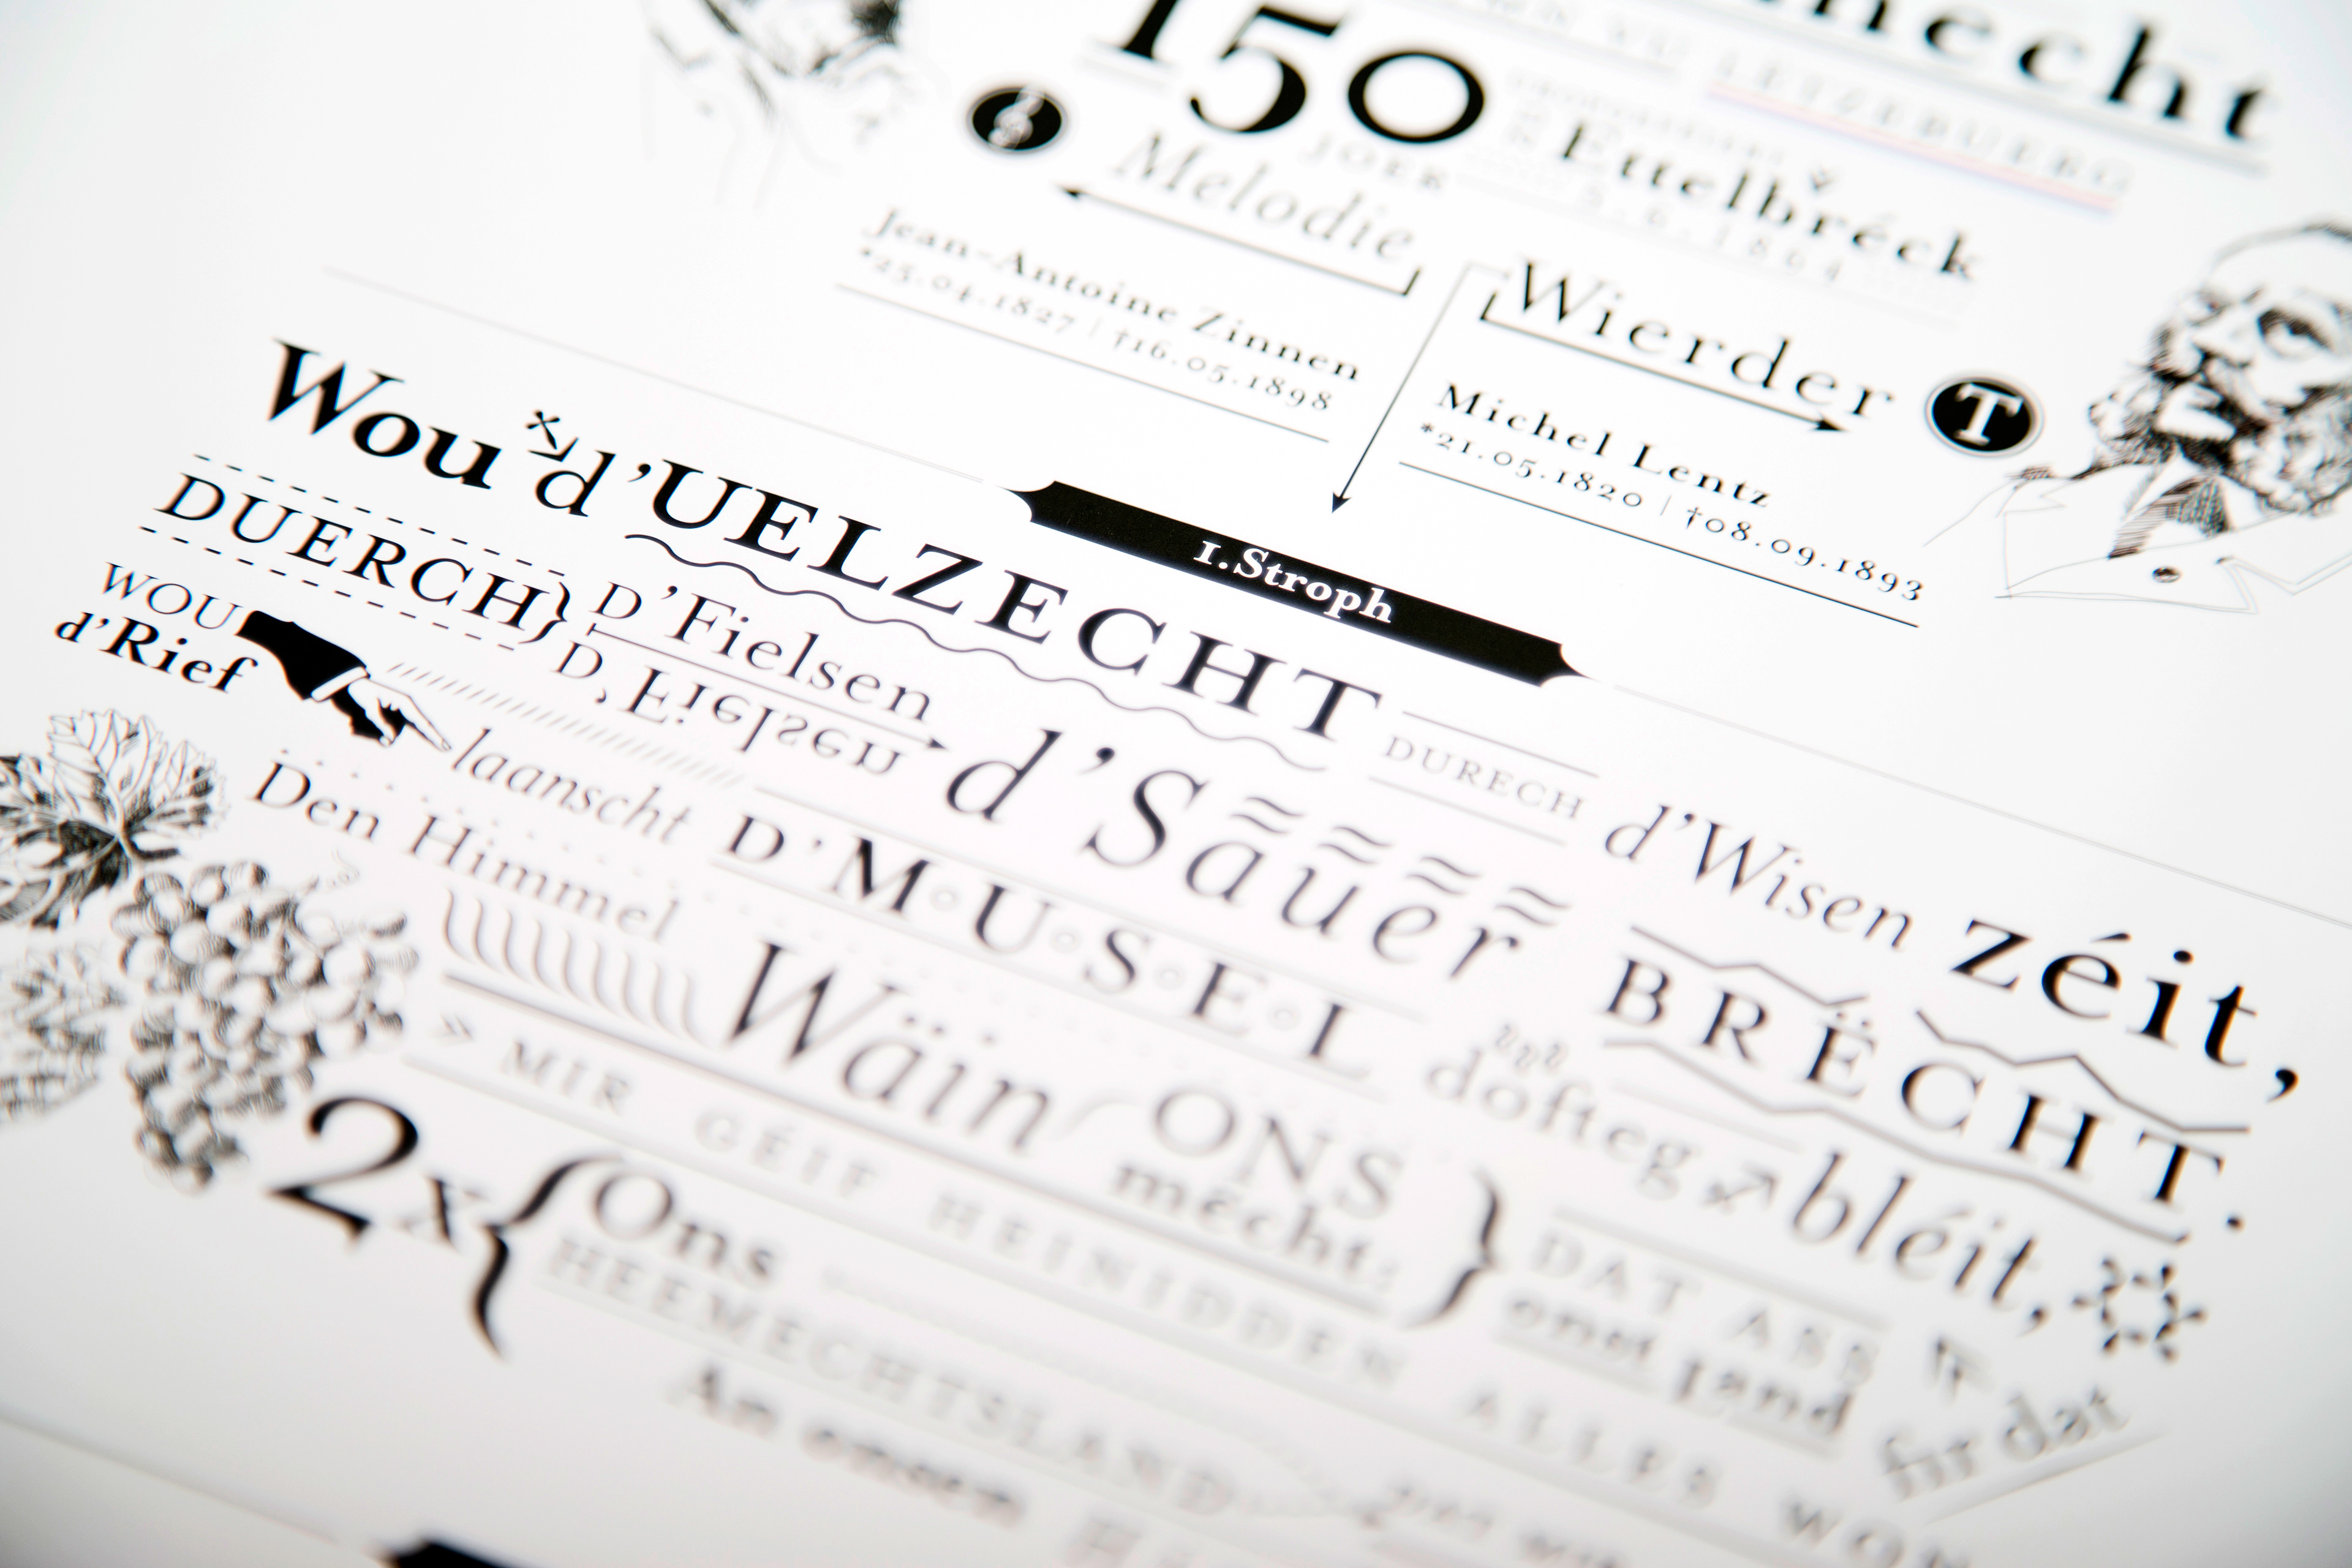 150
JOER
LËTZEBUERG
Ettelbréck
5.6.1864
Melodie
Jean-Antoine Zinnen
*25.04.1827 | †16.05.1898
Wierder
T
Michel Lentz
*21.05.1820 | †08.09.1893
1.Stroph
Wou d'UELZECHT DURECH d'Wisen zéit,
DUERCH} D'Fielsen d'Sauer BRËCHT.
D'Fielsen
WOU d'Rief laanscht D'M·U·S·E·L dofteg bléit,
Den Himmel Wäin ONS mécht:
» MIR GÉIF HEINIDDEN ALLES WON
2x { Ons HEEMECHTSLAND } DAT ASS onst Land fir dat
An onsen